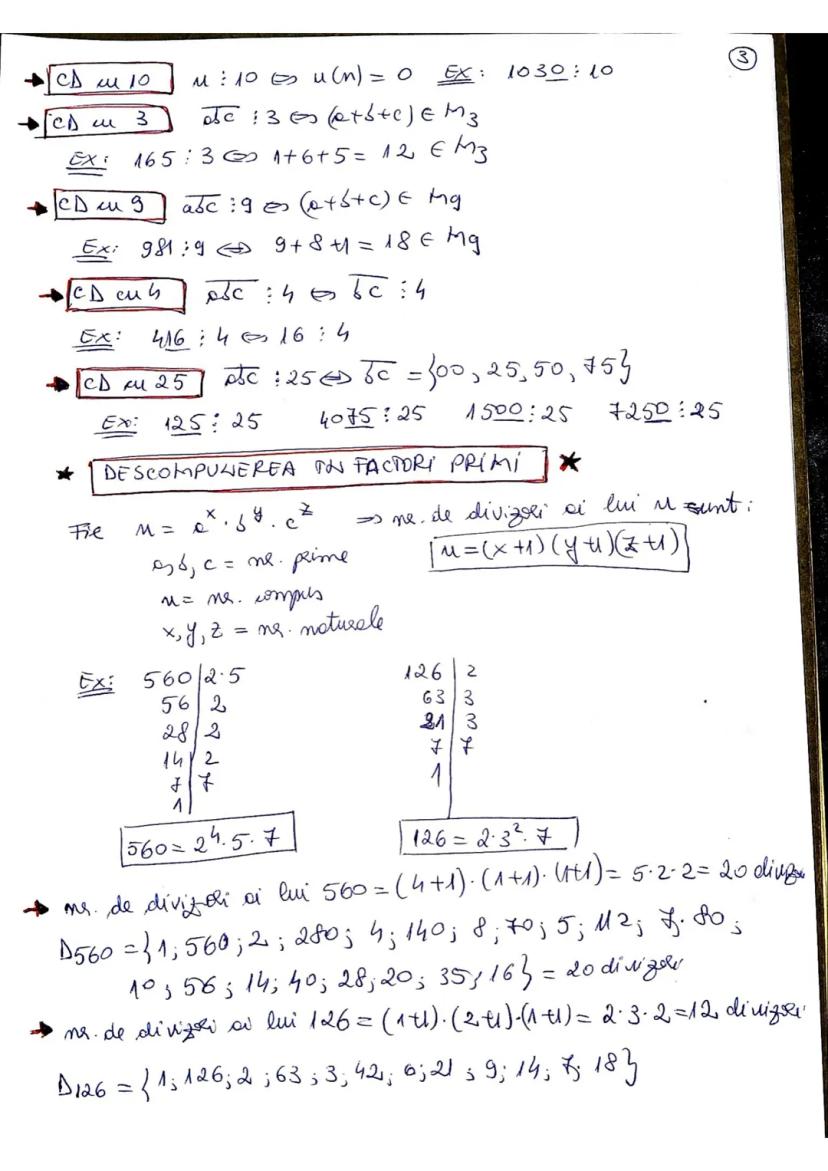 3
→ CD cu 10 n ⋮ 10 ⇔ u(n) = 0 Ex: 1030 ⋮ 10
→ CD cu 3 abc ⋮ 3 ⇔ (a+b+c) ∈ M3
Ex: 165 ⋮ 3 ⇔ 1+6+5 = 12 ∈ M3
→ CD cu 9 abc ⋮ 9 ⇔ (a+b+c) ∈ M9
Ex: 981 ⋮ 9 ⇔ 9+8+1 = 18 ∈ M9
→ CD cu 4 abc ⋮ 4 ⇔ bc ⋮ 4
Ex: 416 ⋮ 4 ⇔ 16 ⋮ 4
→ CD cu 25 abc ⋮ 25 ⇔ bc = {00, 25, 50, 75}
Ex: 125 ⋮ 25 4075 ⋮ 25 1500 ⋮ 25 7250 ⋮ 25
* DESCOMPUNEREA IN FACTORI PRIMI *
Fie n = a^x · b^y · c^z ⇒ nr. de divizori ai lui n sunt:
a, b, c = nr. prime n = (x+1)(y+1)(z+1)
n = nr. compus
x, y, z = nr. naturale
Ex: 560 | 2·5 126 | 2
56 | 2 63 | 3
28 | 2 21 | 3
14 | 2 7 | 7
7 | 7 1
1
560 = 2^4 · 5 · 7 126 = 2 · 3^2 · 7
→ nr. de divizori ai lui 560 = (4+1) · (1+1) · (1+1) = 5 · 2 · 2 = 20 divizori
D560 = {1; 560; 2; 280; 4; 140; 8; 70; 5; 112; 7; 80;
10; 56; 14; 40; 28; 20; 35; 16} = 20 divizori
→ nr. de divizori ai lui 126 = (1+1) · (2+1) · (1+1) = 2 · 3 · 2 = 12 divizori
D126 = {1; 126; 2; 63; 3; 42; 6; 21; 9; 14; 7; 18}